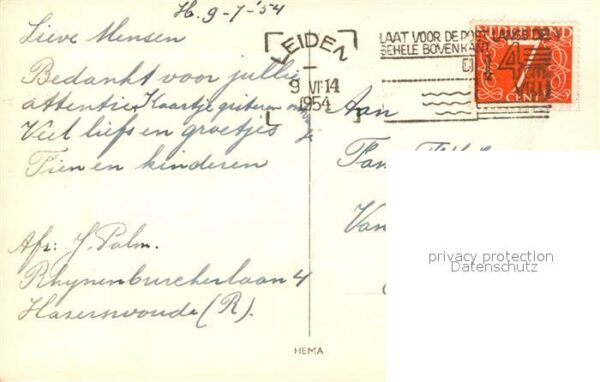 H. 9-7-'54
Lieve Mensen
Bedankt voor jullie
attentie. Kaartje gisteren
Veel liefs en groetjes
Tien en kinderen
Afz: J. Palm.
Rhynenburcherlaan 4
Hazerswoude (R).
LEIDEN
9 VII 14
1954
LAAT VOOR DE POST LANGS DE
GEHELE BOVENKANT
NEDERLAND
7
CENT
Aan
Fam
Van
HEMA
privacy protection
Datenschutz